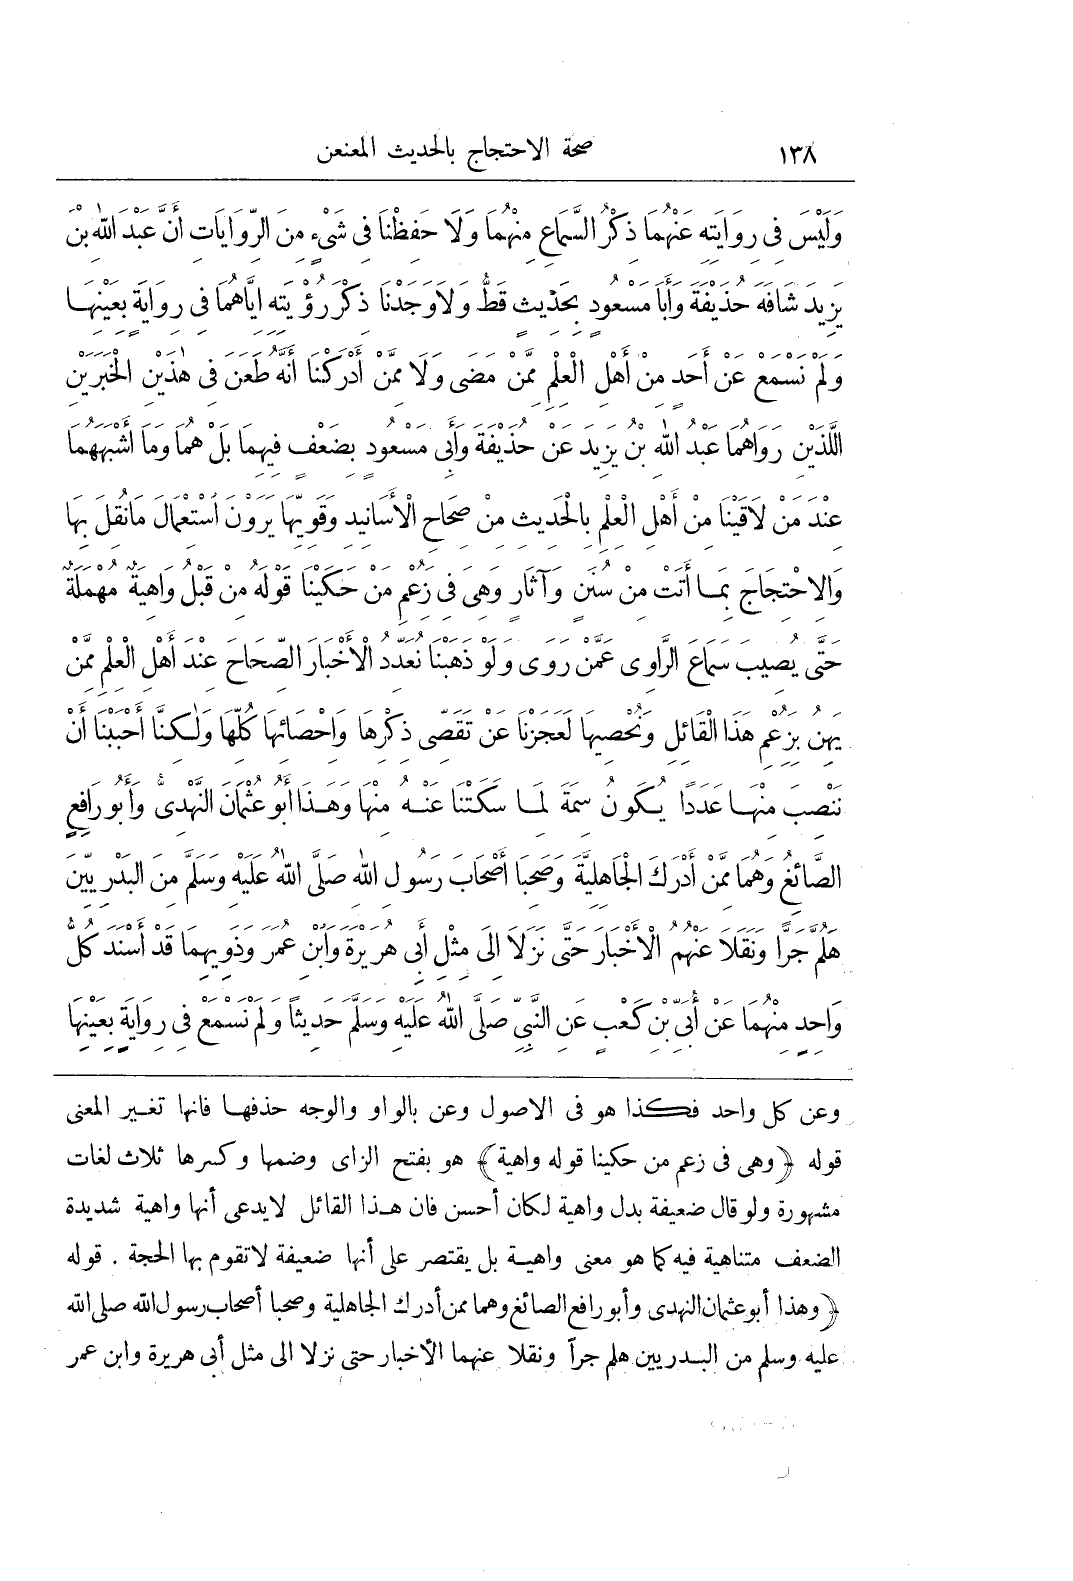 ١٣٨ صحة الاحتجاج بالحديث المعنعن
وَلَيْسَ فِى رِوَايَتِهِ عَنْهُمَا ذِكْرُ السَّمَاعِ مِنْهُمَا وَلَا حَفِظْنَا فِى شَىْءٍ مِنَ الرِّوَايَاتِ أَنَّ عَبْدَ اللّٰهِ بْنَ
يَزِيدَ شَافَهَ حُذَيْفَةَ وَأَبَا مَسْعُودٍ بِحَدِيثٍ قَطُّ وَلَا وَجَدْنَا ذِكْرَ رُؤْيَتِهِ إِيَّاهُمَا فِى رِوَايَةٍ بِعَيْنِهَا
وَلَمْ نَسْمَعْ عَنْ أَحَدٍ مِنْ أَهْلِ الْعِلْمِ مِمَّنْ مَضَى وَلَا مِمَّنْ أَدْرَكْنَا أَنَّهُ طَعَنَ فِى هٰذَيْنِ الْخَبَرَيْنِ
اللَّذَيْنِ رَوَاهُمَا عَبْدُ اللّٰهِ بْنُ يَزِيدَ عَنْ حُذَيْفَةَ وَأَبِى مَسْعُودٍ بِضَعْفٍ فِيهِمَا بَلْ هُمَا وَمَا أَشْبَهَهُمَا
عِنْدَ مَنْ لَاقَيْنَا مِنْ أَهْلِ الْعِلْمِ بِالْحَدِيثِ مِنْ صِحَاحِ الْأَسَانِيدِ وَقَوِيِّهَا يَرَوْنَ اسْتِعْمَالَ مَا نُقِلَ بِهَا
وَالِاحْتِجَاجَ بِمَا أَتَتْ مِنْ سُنَنٍ وَآثَارٍ وَهِىَ فِى زَعْمِ مَنْ حَكَيْنَا قَوْلَهُ مِنْ قَبْلُ وَاهِيَةٌ مُهْمَلَةٌ
حَتَّى يُصِيبَ سَمَاعَ الرَّاوِى عَمَّنْ رَوَى وَلَوْ ذَهَبْنَا نُعَدِّدُ الْأَخْبَارَ الصِّحَاحَ عِنْدَ أَهْلِ الْعِلْمِ مِمَّنْ
يَهِنُ بِزَعْمِ هَذَا الْقَائِلِ وَنُحْصِيهَا لَعَجَزْنَا عَنْ تَقَصِّى ذِكْرِهَا وَإِحْصَائِهَا كُلِّهَا وَلٰكِنَّا أَحْبَبْنَا أَنْ
نَنْصِبَ مِنْهَا عَدَدًا يَكُونُ سِمَةً لِمَا سَكَتْنَا عَنْهُ مِنْهَا وَهَذَا أَبُو عُثْمَانَ النَّهْدِىُّ وَأَبُو رَافِعٍ
الصَّائِغُ وَهُمَا مِمَّنْ أَدْرَكَ الْجَاهِلِيَّةَ وَصَحِبَا أَصْحَابَ رَسُولِ اللّٰهِ صَلَّى اللّٰهُ عَلَيْهِ وَسَلَّمَ مِنَ الْبَدْرِيِّينَ
هَلُمَّ جَرًّا وَنَقَلَا عَنْهُمُ الْأَخْبَارَ حَتَّى نَزَلَا إِلَى مِثْلِ أَبِى هُرَيْرَةَ وَابْنِ عُمَرَ وَذَوِيهِمَا قَدْ أَسْنَدَ كُلُّ
وَاحِدٍ مِنْهُمَا عَنْ أُبَىِّ بْنِ كَعْبٍ عَنِ النَّبِىِّ صَلَّى اللّٰهُ عَلَيْهِ وَسَلَّمَ حَدِيثًا وَلَمْ نَسْمَعْ فِى رِوَايَةٍ بِعَيْنِهَا
وعن كل واحد فكذا هو فى الاصول وعن بالواو والوجه حذفها فانها تغير المعنى
قوله ﴿وهى فى زعم من حكينا قوله واهية﴾ هو بفتح الزاى وضمها وكسرها ثلاث لغات
مشهورة ولو قال ضعيفة بدل واهية لكان أحسن فان هذا القائل لا يدعى أنها واهية شديدة
الضعف متناهية فيه كما هو معنى واهية بل يقتصر على أنها ضعيفة لا تقوم بها الحجة . قوله
﴿وهذا أبو عثمان النهدى وأبو رافع الصائغ وهما ممن أدرك الجاهلية وصحبا أصحاب رسول الله صلى الله
عليه وسلم من البدريين هلم جراً ونقلا عنهما الأخبار حتى نزلا الى مثل أبى هريرة وابن عمر